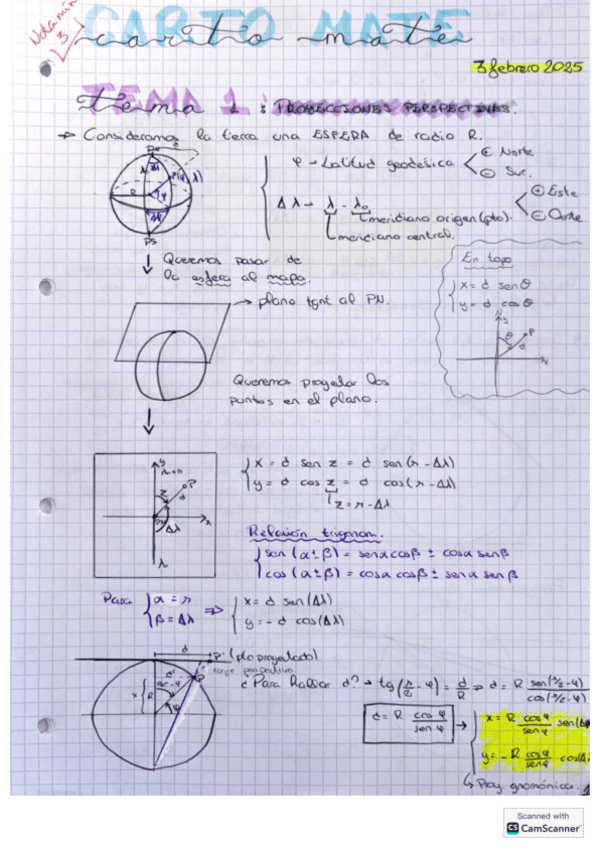 Nota min
3
CARTO MATE
carto mate
3 febrero 2025
TEMA 1
tema 1 : PROYECCIONES PERSPECTIVAS.
→ Consideramos la tierra una ESFERA de radio R.
φ → Latitud geodésica < ⊕ Norte
⊖ Sur.
Δλ → λ - λ₀ < ⊕ Este
⊖ Oeste
meridiano origen (pto).
meridiano central.
R
Ps
↓ Queremos pasar de
la esfera al mapa.
→ plano tgnt al PN.
En topo
x = d sen θ
y = d cos θ
N
y
P
θ
d
x
Queremos proyectar los
puntos en el plano.
↓
y
λ+π
z
P
d
Δλ
x
λ
x = d sen z = d sen (π - Δλ)
y = d cos z = d cos (π - Δλ)
z = π - Δλ
Relación trigonom.
sen (α ± β) = senα cosβ ± cosα senβ
cos (α ± β) = cosα cosβ ± senα senβ
Para { α = π ⇒ { x = d sen (Δλ)
β = Δλ y = - d cos (Δλ)
d
P' (pto proyectado)
P
x
R
φ
¿Para hallar d? → tg (π/2 - φ) = d/R ⇒ d = R sen(π/2-φ)/cos(π/2-φ)
d = R cos φ/sen φ →
x = R cos φ/sen φ sen (Δ
y = - R cos φ/sen φ cos (Δ
↳ Proy. gnomónica.
Scanned with
CS CamScanner